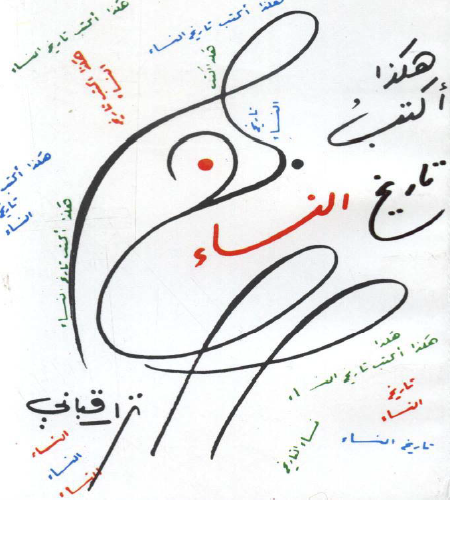 هكذا أكتب تاريخ النساء
هكذا أكتب تاريخ النساء
هكذا أكتب
تاريخ
النساء
هكذا
أكتبُ
تاريخ
النساء
هكذا أكتب
تاريخ
النساء
هكذا أكتب تاريخ النساء
نزار قباني
هكذا
هكذا أكتب تاريخ النساء
تاريخ
النساء
تاريخ النساء
النساء
النساء
النساء